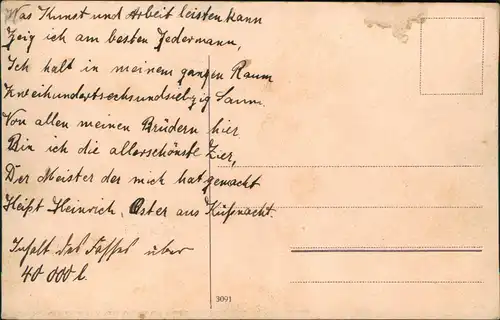 Was Kunst und Arbeit leisten kann
Zeig ich am besten Jedermann,
Ich halt in meinem ganzen Raum
Zweihundertsechsundsiebzig Saum.
Von allen meinen Brüdern hier
Bin ich die allerschönste Zier,
Der Meister der mich hat gemacht
Heißt Heinrich, Oster aus Küßnacht.
Inhalt des Fasses über
40 000 l.
3091